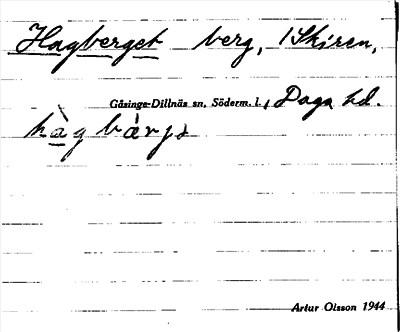 Hagberget berg, 1 Skiren,
Gåsinge-Dillnäs sn, Söderm. l., Daga hd.
hàg bàrjə
Artur Olsson 1944